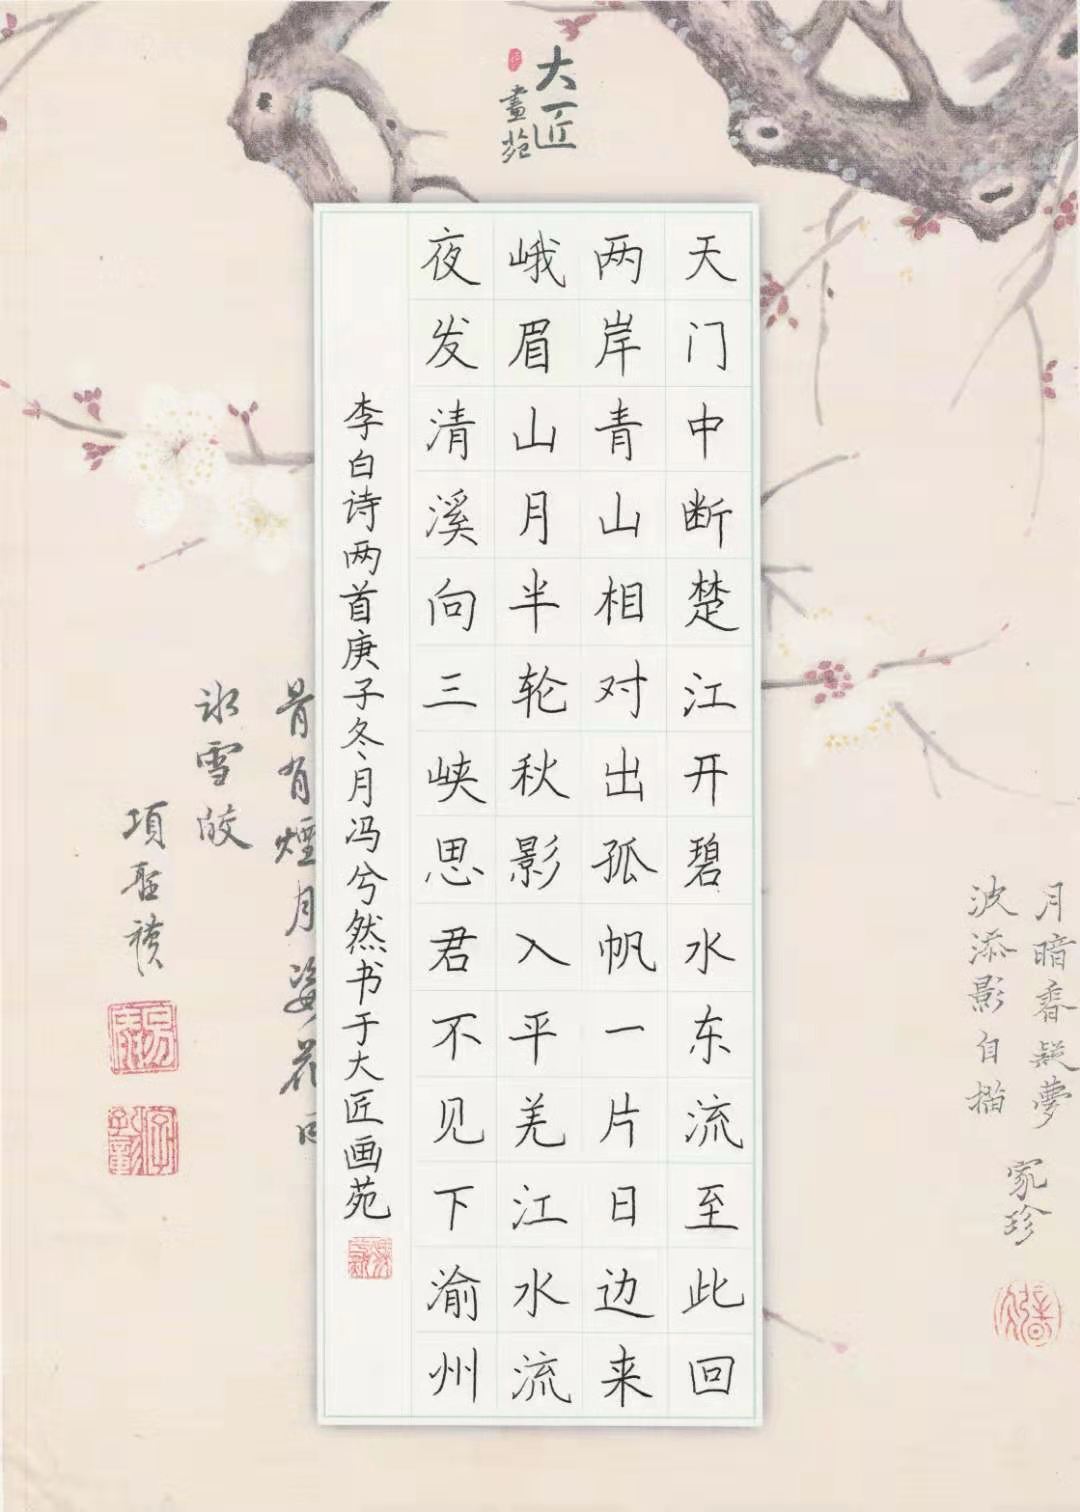 大匠
畫苑
天门中断楚江开碧水东流至此回
两岸青山相对出孤帆一片日边来
峨眉山月半轮秋影入平羌江水流
夜发清溪向三峡思君不见下渝州
李白诗两首庚子冬月冯兮然书于大匠画苑
月暗香疑夢
波添影自描
家珍
骨有煙月姿花
冰雪皎
項聖謨